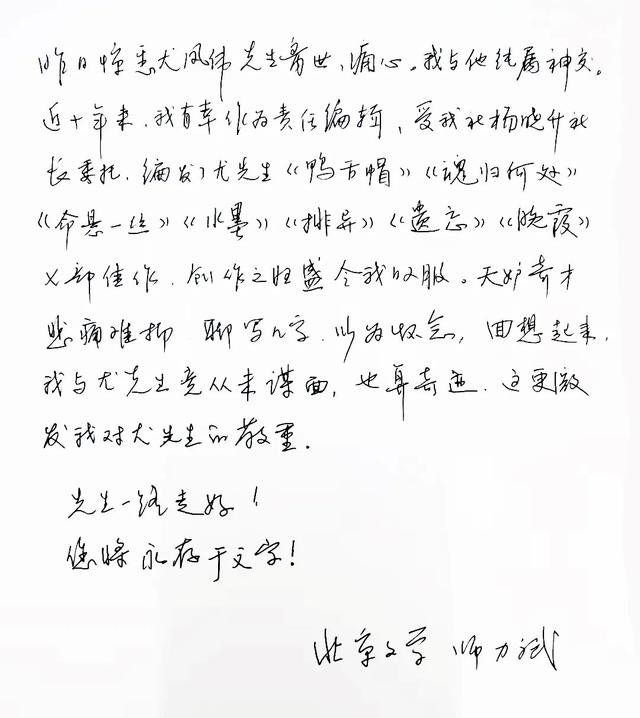 昨日惊悉尤凤伟先生离世，痛心。我与他纯属神交。
近十年来，我有幸作为责任编辑，受我社杨晓升社
长委托，编发了尤先生《鸭舌帽》《魂归何处》
《命悬一丝》《水墨》《排异》《遗忘》《晚霞》
部佳作，创作之旺盛令我叹服。天妒奇才
悲痛难抑 聊写几字，以为怀念，回想起来，
我与尤先生竟从未谋面，也算奇迹，这更激
发我对尤先生的敬重。
先生一路走好！
您将永存于文字！
北京文学 师力斌